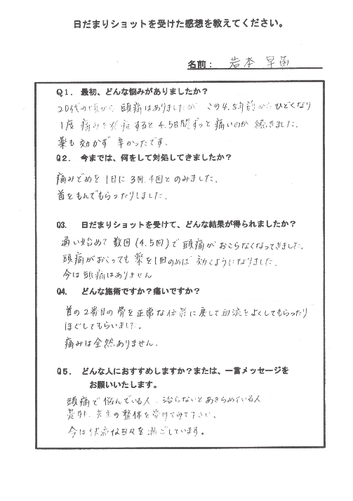 日だまりショットを受けた感想を教えてください。
名前： 岩本 早苗
Q1. 最初、どんな悩みがありましたか？
20代の頃から 頭痛はありましたが この4.5年前からひどくなり
1度 痛みを すると 4.5日間ずっと痛いのが 続きました。
薬も効かず 辛かったです。
Q2． 今までは、何をして対処してきましたか？
痛みどめを1日に3回 4回とのみました。
首をもんでもらったりしました。
Q3. 日だまりショットを受けて、どんな結果が得られましたか？
通い始めて 数回(4.5回)で 頭痛が おこらなくなってきました。
頭痛がおこっても 薬を1回のめば 効くようになりました。
今は 頭痛はありません
Q4. どんな施術ですか？痛いですか？
首の2番目の骨を正常な位置に戻して血流をよくしてもらったり
ほぐしてもらいました。
痛みは全然ありません。
Q5． どんな人におすすめしますか？または、一言メッセージを
お願いいたします。
頭痛で悩んでいる人、治らないとあきらめている人
是非、先生の整体を受けてみて下さい。
今は 快適な日々を過ごしています。